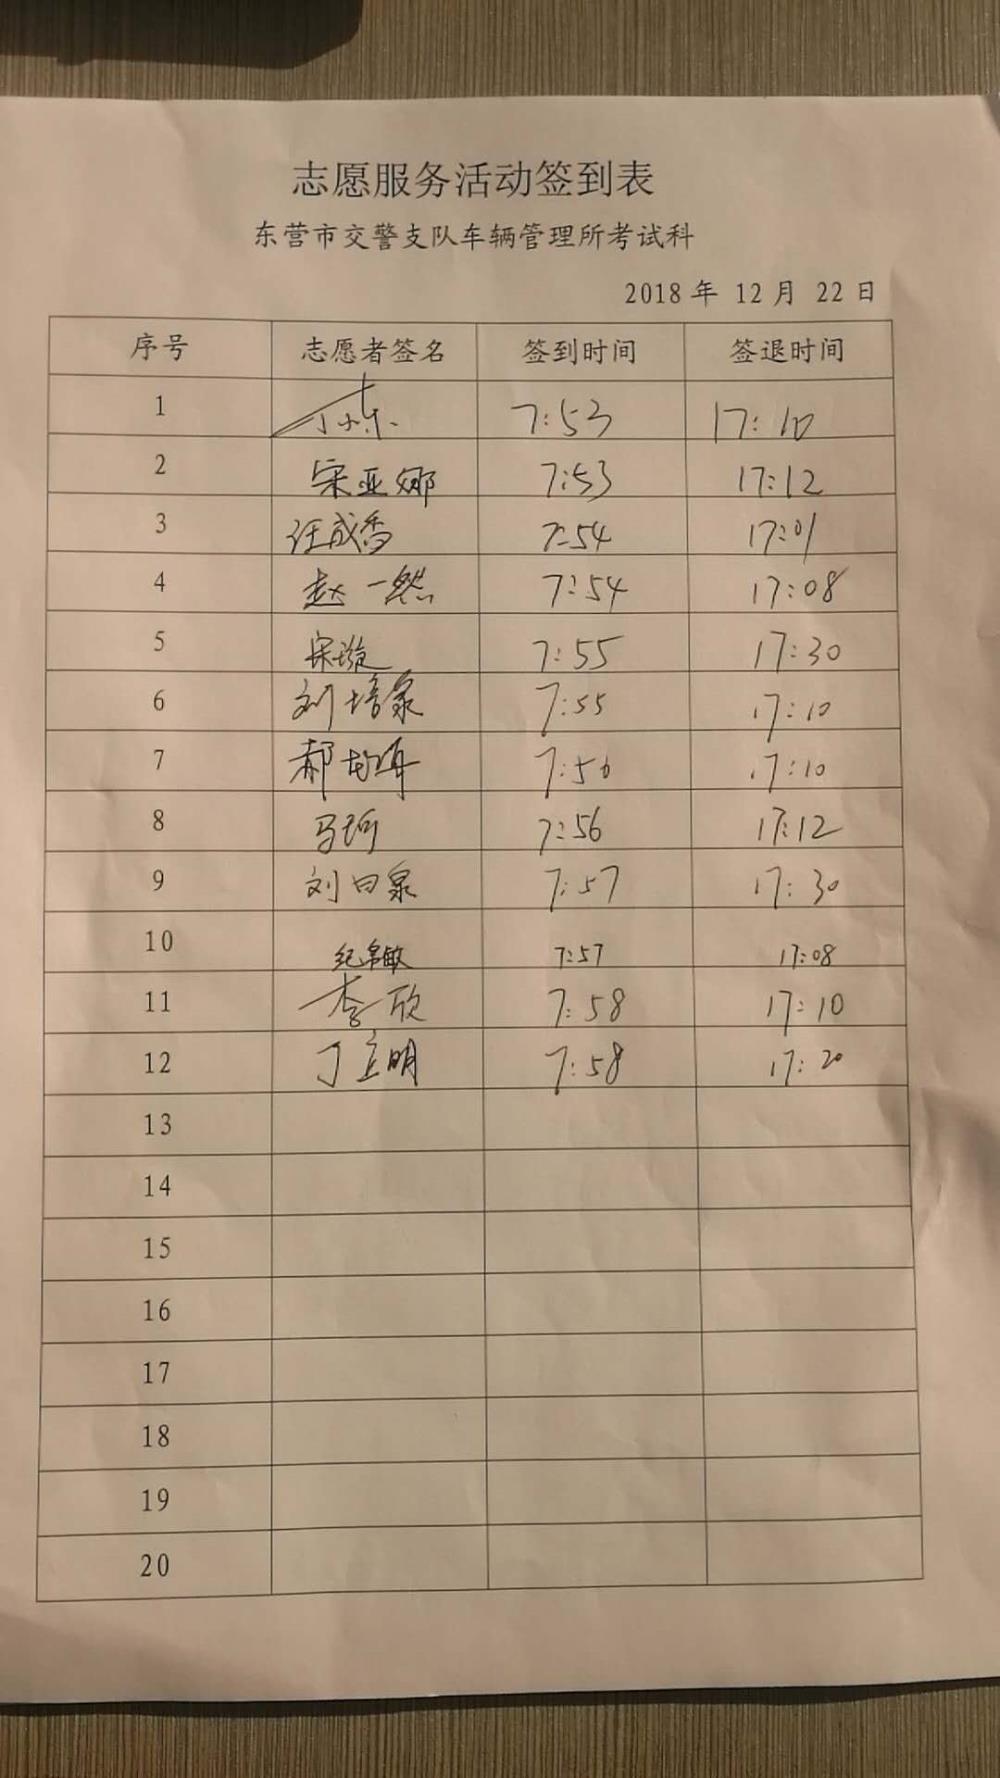 志愿服务活动签到表
东营市交警支队车辆管理所考试科
2018 年 12 月 22 日
序号 志愿者签名 签到时间 签退时间
1 7:53 17:10
2 宋亚娜 7:53 17:12
3 汪成香 7:54 17:01
4 赵一然 7:54 17:08
5 宋璇 7:55 17:30
6 刘培泉 7:55 17:10
7 郝 7:56 17:10
8 马珂 7:56 17:12
9 刘曰泉 7:57 17:30
10 纪 敏 7:57 17:08
11 李欣 7:58 17:10
12 丁立明 7:58 17:20
13
14
15
16
17
18
19
20